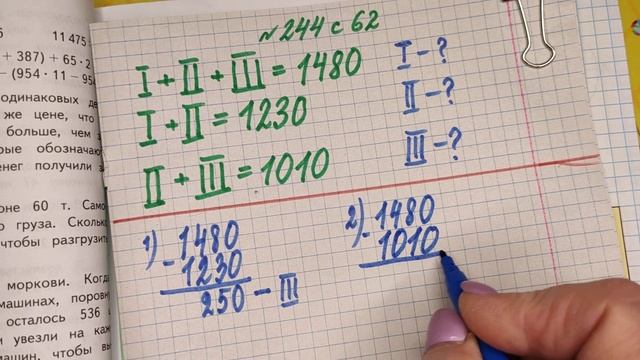 11 475
+ 387) + 65 · 2
− (954 · 11 − 954
одинаковых де
же цене, что
больше, чем з
рые обозначают
енег получили з
оне 60 т. Само
о груза. Сколько
чтобы разгрузить
моркови. Когда
машинах, поровну
осталось 536
и увезли на каж
машин, чтобы вы
№ 244 с 62
I + II + III = 1480
I + II = 1230
II + III = 1010
I – ?
II – ?
III – ?
1) 1480
- 1230
250 – III
2) 1480
- 1010